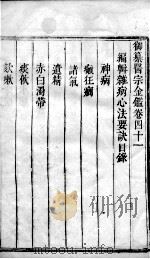 御纂醫宗金鑑卷四十一
編輯雜病心法要訣目錄
神病
癲狂癇
諸氣
遺精
赤白濁帶
痰飲
欬嗽